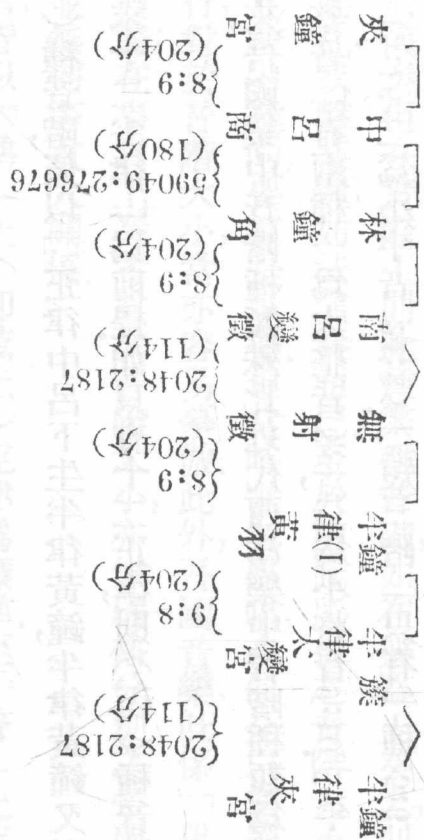 夾鐘宮
8:9
(204分)
中呂商
59049:276676
(180分)
林鐘角
8:9
(204分)
南呂變徵
2048:2187
(114分)
無射徵
8:9
(204分)
半律(1)黃鐘羽
9:8
(204分)
半律太簇變宮
2048:2187
(114分)
半律夾鐘宮